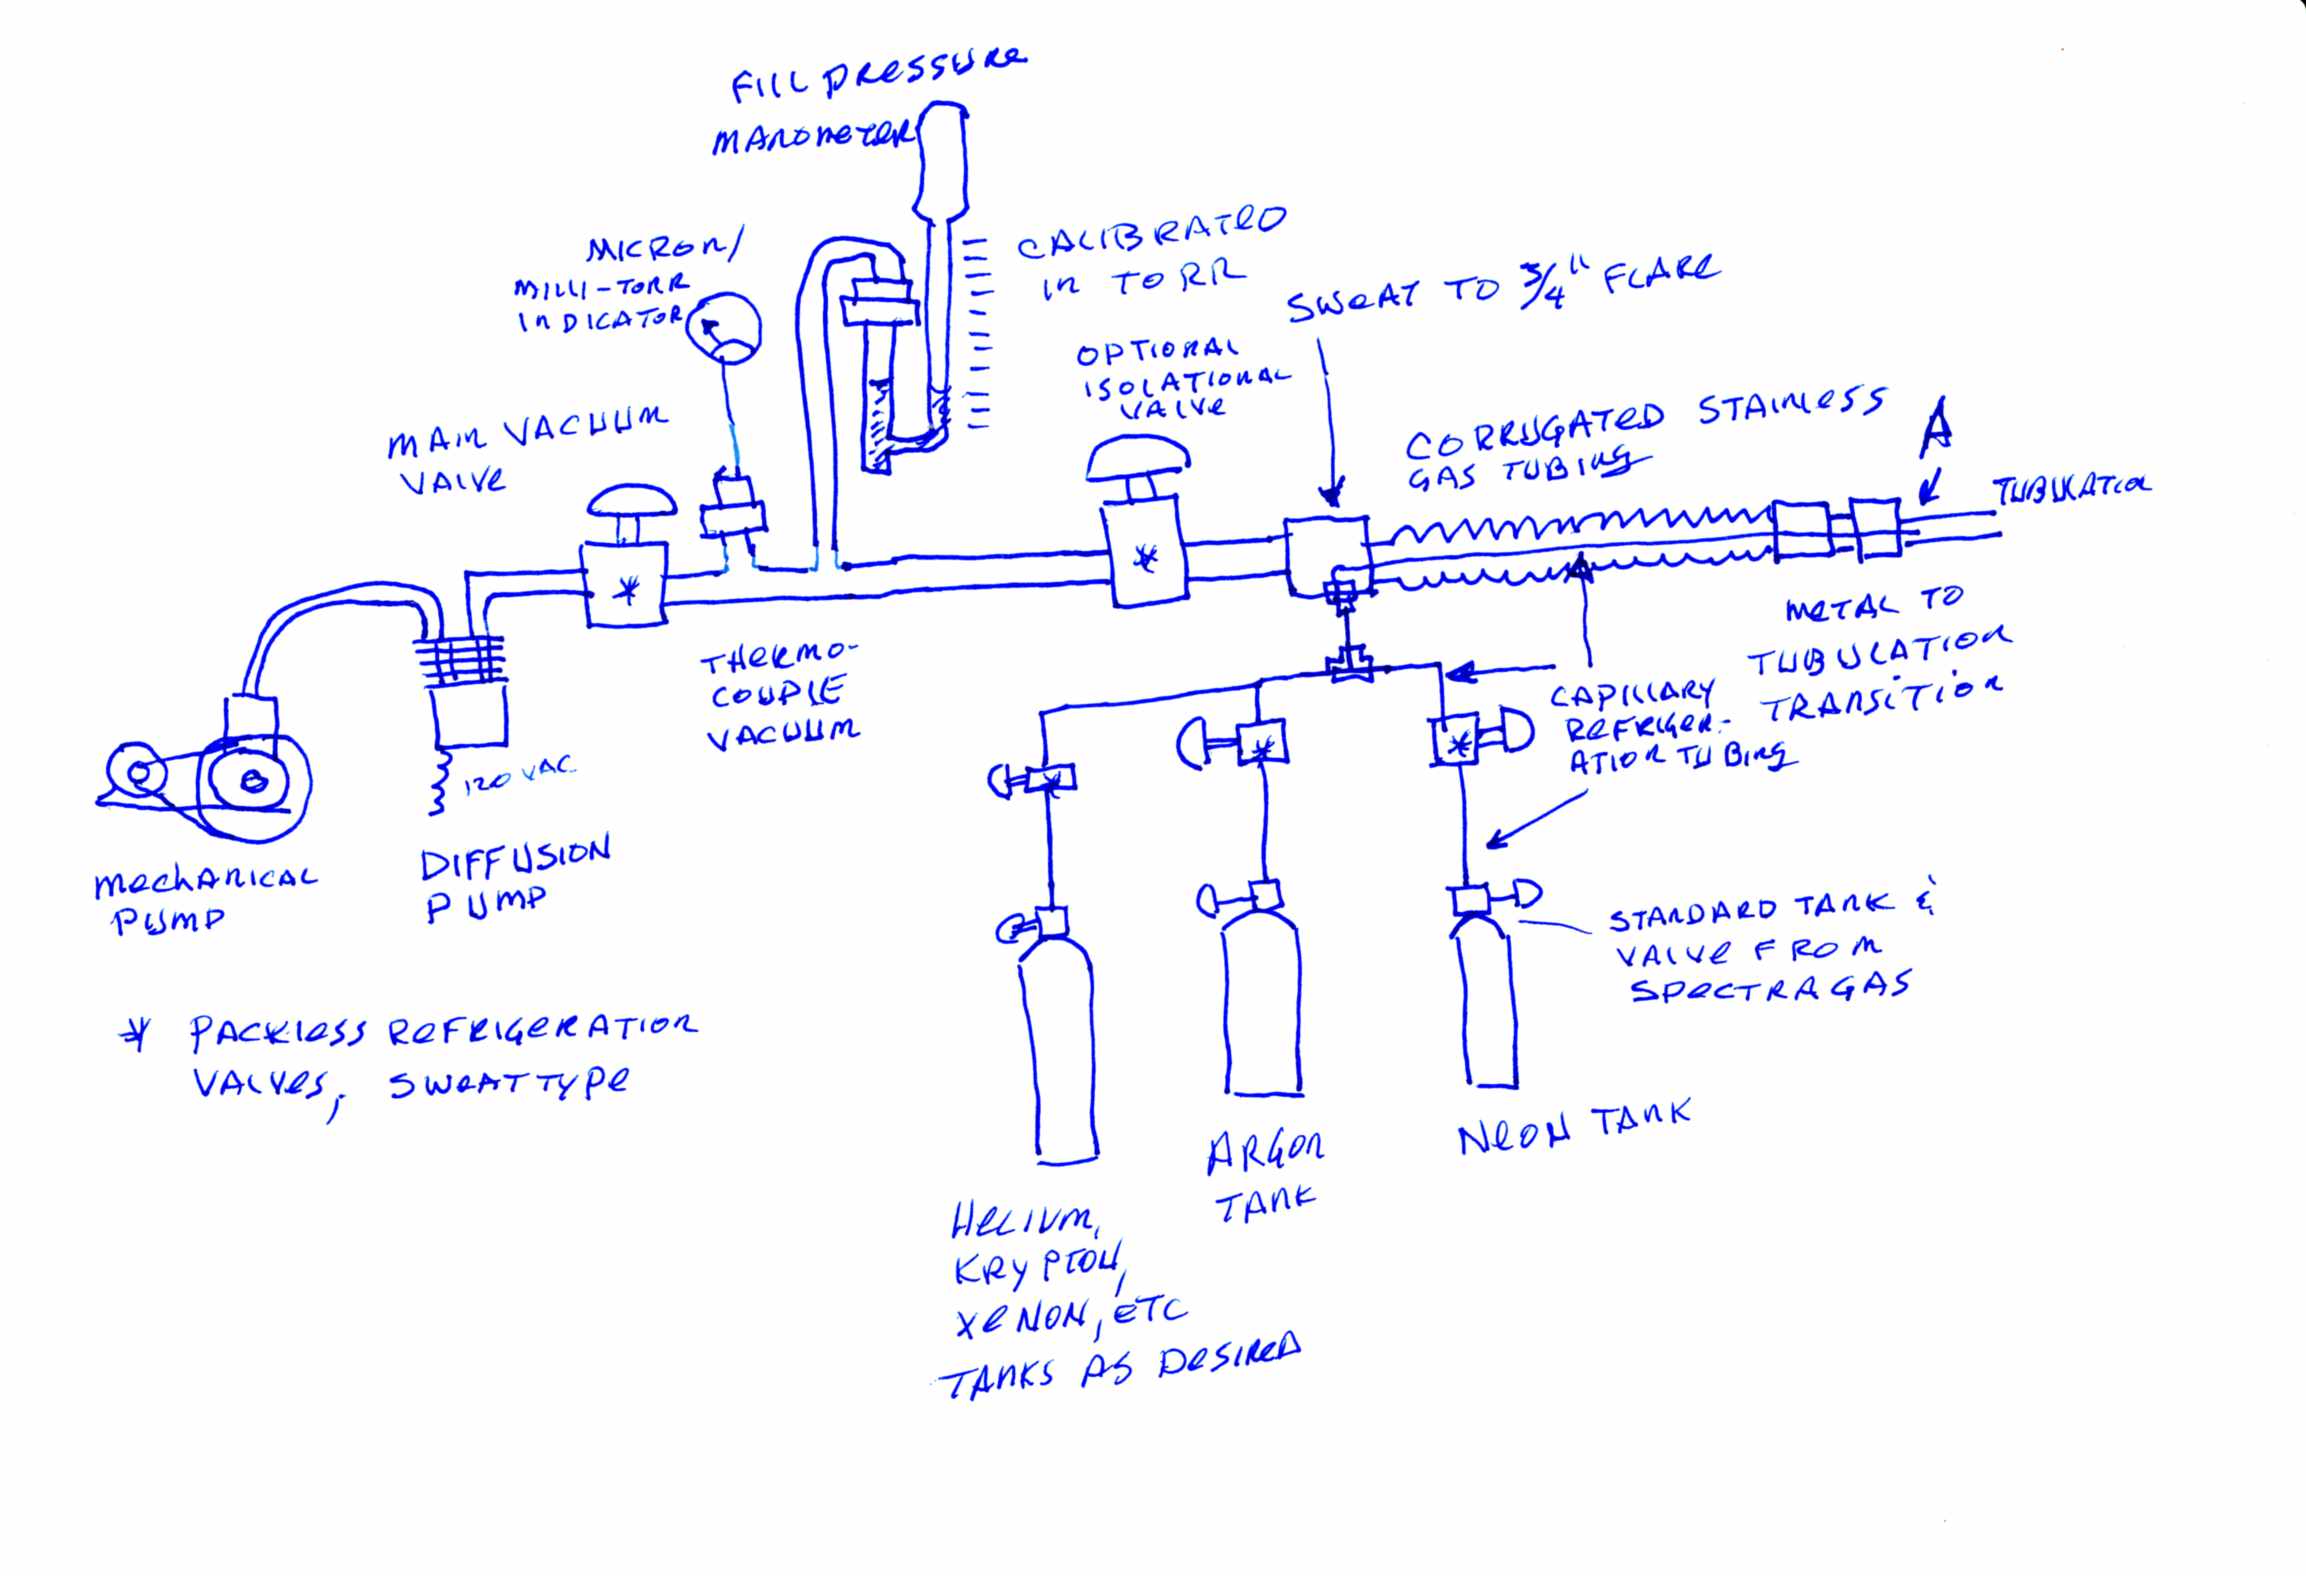 FILL PRESSURE
MANOMETER
MICRON/
MILLI-TORR
INDICATOR
CALIBRATED
IN TORR
SWEAT TO 3/4" FLARE
OPTIONAL
ISOLATIONAL
VALVE
MAIN VACUUM
VALVE
CORRUGATED STAINLESS
GAS TUBING
A
TUBULATION
*
*
METAL TO
TUBULATION
TRANSITION
THERMO-
COUPLE
VACUUM
CAPILLARY
REFRIGER-
ATION TUBING
*
*
*
120 VAC
MECHANICAL
PUMP
DIFFUSION
PUMP
STANDARD TANK &
VALVE FROM
SPECTRA GAS
* PACKLESS REFRIGERATION
VALVES, SWEAT TYPE
NEON TANK
ARGON
TANK
HELIUM,
KRYPTON,
XENON, ETC
TANKS AS DESIRED